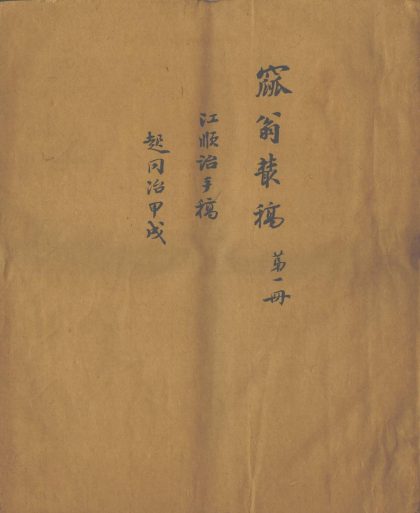 窳翁叢稿 第一冊
江順詒手稿
起同治甲戌